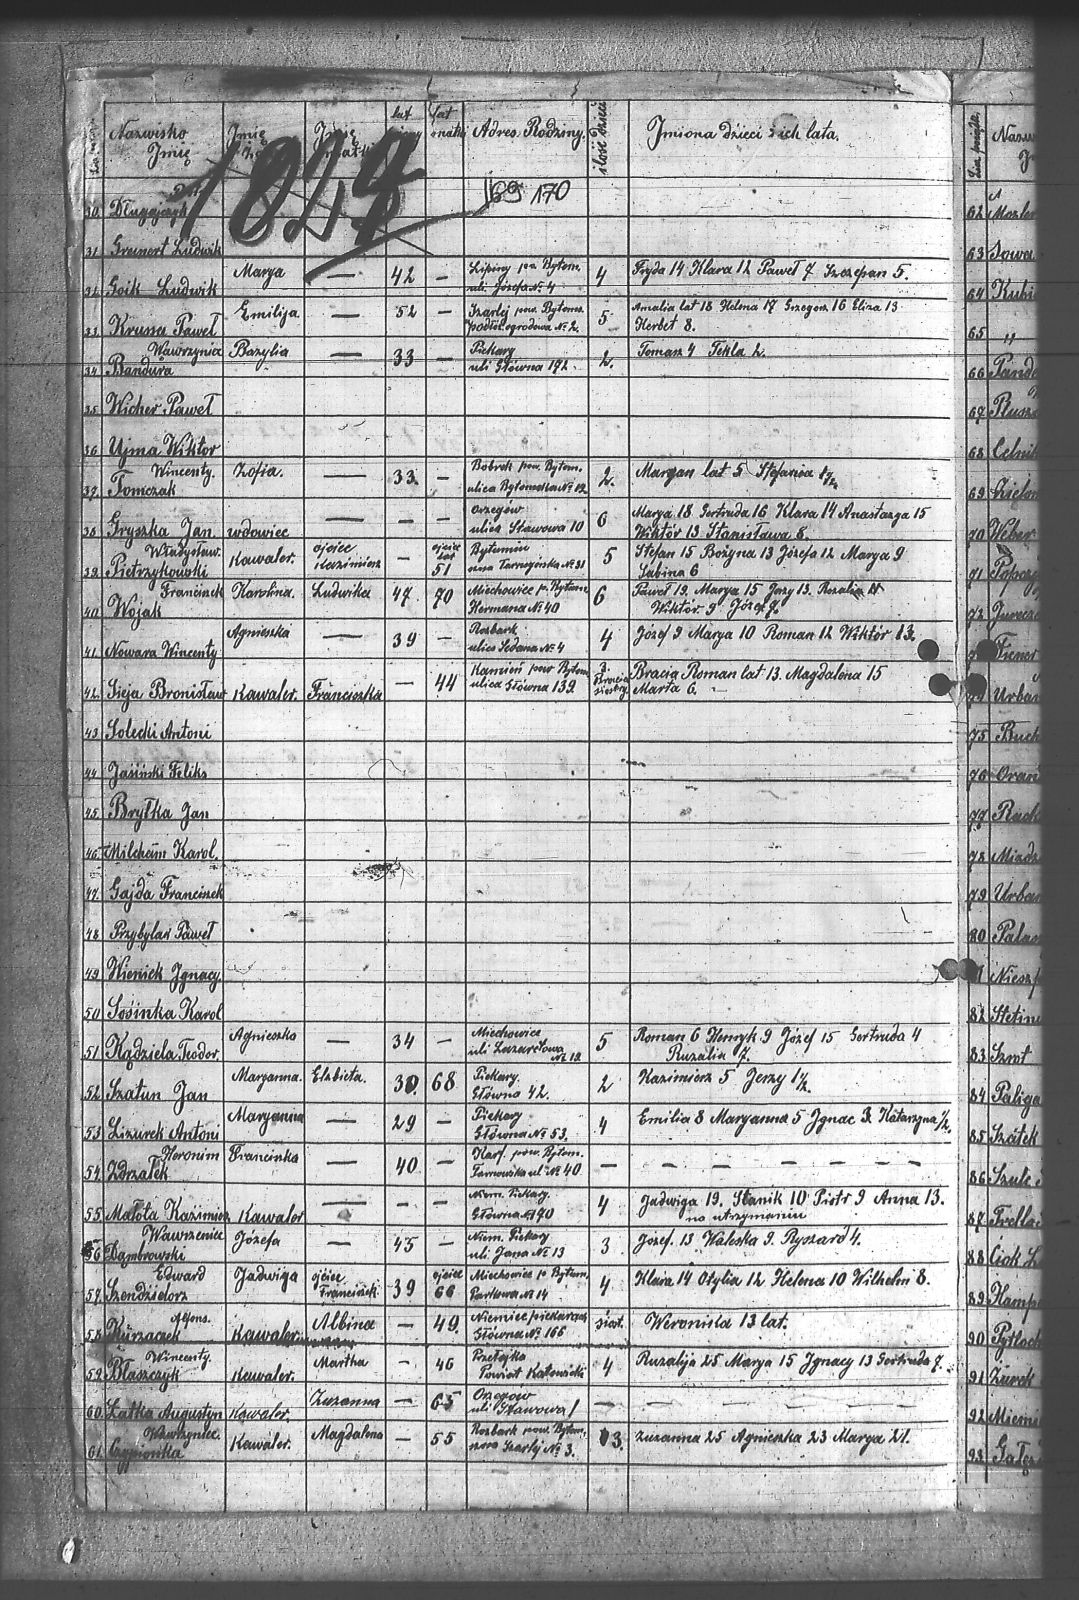 Nazwisko Imię
lat
lat
Adres. Rodziny.
ilość dzieci
Jmiona dzieci i ich lata.
1824
169 170
30. Długajczyk
31. Greinert Ludwik
32. Goik Ludwik Marya — 42 — Lipiny pow. Bytom. 4 Fryda 14 Klara 12 Paweł 7 Szczepan 5.
uli Józefa № 4
33. Krussa Paweł Emilija — 52 — Szarlej pow. Bytoms. 5 Amalia lat 18 Helena 17 Grzegorz 16 Eliza 13
ogrodowa № 2. Herbet 8.
Wawrzynia Bazylia — 33 — Piekary 2. Tomasz 4 Tekla 2.
34. Bandura uli Główna 192.
35. Wicher Paweł
36. Ujma Wiktor
Wincenty. Zofia. — 33. — Bobrek pow. Bytom. 2. Maryan lat 5 Stefania 1/2
37. Tomczak ulica Bytomska № 12
38. Gryszka Jan wdowiec — — — Orzegów 6 Marya 18 Gertruda 16 Klara 14 Anastazya 15
ulica Stawowa 10 Wiktór 13 Stanisława 8.
Władysław. Kawaler. ojciec — ojciec lat Bytomiu 5 Stefan 15 Bożyna 13 Józefa 12 Marya 9
39. Pietrzykowski Kazimierz 51 № 31 Sabina 6
Franciszek Karolina. Ludwika 47. 70 Miechowice p. Bytom. 6 Paweł 19. Marya 15 Jerzy 13. Rozalia 11
40. Wojak Hermana № 40 Wiktor 9 Józef 7.
41. Nowara Wincenty Agnieszka — 39 — Rozbark 4 Józef 9 Marya 10 Roman 12 Wiktór 13.
ulica Sedana № 4
42. Sieja Bronisław Kawaler. Franciszka — 44 Kamień pow Bytom 3. Bracia Roman lat 13. Magdalena 15
ulica Główna 139. Bracia siostry Marta 6. —
43. Solecki Antoni
44. Jasiński Feliks
45. Bryłka Jan
46. Milcham Karol.
47. Gajda Franciszek
48. Przybylas Paweł
49. Wieniek Jgnacy
50. Sosinka Karol
51. Kądziela Teodor. Agnieszka — 34 — Miechowice 5 Roman 6 Henryk 9 Józef 15 Gertruda 4
uli Lazaretowa № 19. Ruzalia 7.
52. Szatun Jan Maryanna. Elzbieta. 30. 68 Piekary. 2 Kazimierz 5 Jerzy 1 1/2
Główna 42.
53. Lizurek Antoni Maryanna — 29 — Piekary 4 Emilia 8 Maryanna 5 Jgnac 3 Katarzyna 1/2.
Główna № 53.
Heronim Francinka — 40 — Karf. pow. Bytom. — — — — — —
54. Zdrzałek Tarnowska ul № 40
55. Małota Kazimierz Kawaler — — — Niem. Piekary. 4 Jadwiga 19. Stanik 10 Piotr 9 Anna 13.
Główna № 170 na utrzymaniu
Wawrzeniec Józefa — 45 — Niem. Piekary 3 Józef. 13 Waleska 9. Ryszard 4.
56. Dąmbrowski uli Jana № 13
Edward Jadwiga ojciec 39 ojciec Miechowice p. Bytom. 4 Klara 14 Otylia 12 Helena 10 Wilhelm 8.
57. Szendzielorz Franciszek 66 Parkowa № 14
Alfons. Albina — 49. Niemiec piekarach siost. Weronika 13 lat.
58. Kurzaczek Kawaler Główna № 166
Wincenty. Martha — 46 Przełajka 4 Ruzalija 25 Marya 15 Jgnacy 13 Gertruda 7.
59. Błaszczyk Kawaler. Powiat Katowicki
60. Łatka Augustyn Kawaler. Zuzanna — 65 Orzegow — — — — — —
uli Stawowa 1
Wawrzyniec. Kawaler. Magdalena — 55 Rozbark pow. Bytom. 3. Zuzanna 25 Agnieszka 23 Marya 21.
61. Cypionka Szarlej № 3.
Nazw
62.
63. Sowa
64. Kubi
65. "
66. Pande
67. Plusz
68. Celnik
69. Zielon
70. Weber
71.
72. Jurecz
Urban
75. Buch
76.
77. Rack
78. Miadz
79. Urban
80. Palar
Niesz
82. Stetin
83. Szrot
84. Paliga
85. Szátek
86. Szulc
87. Trella
88. Ciok
89. Hamp
90. Pytloch
91. Żurek
92. Miemi
93. Gałę